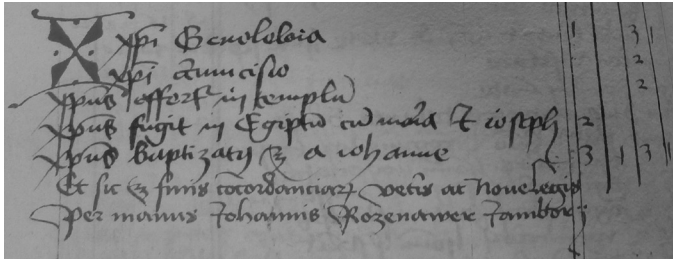 Xpi Genoloia 1 3 1
xpi circumcisio 2
xpus offert in templu 2
xpus fugit in Egiptu cu maria et ioseph 2
xpus baptizatus est a iohanne 3 1 3 1
Et sic est finis concordanciarum veteris ac Novelegis
Per manus Johannis Rozenawer